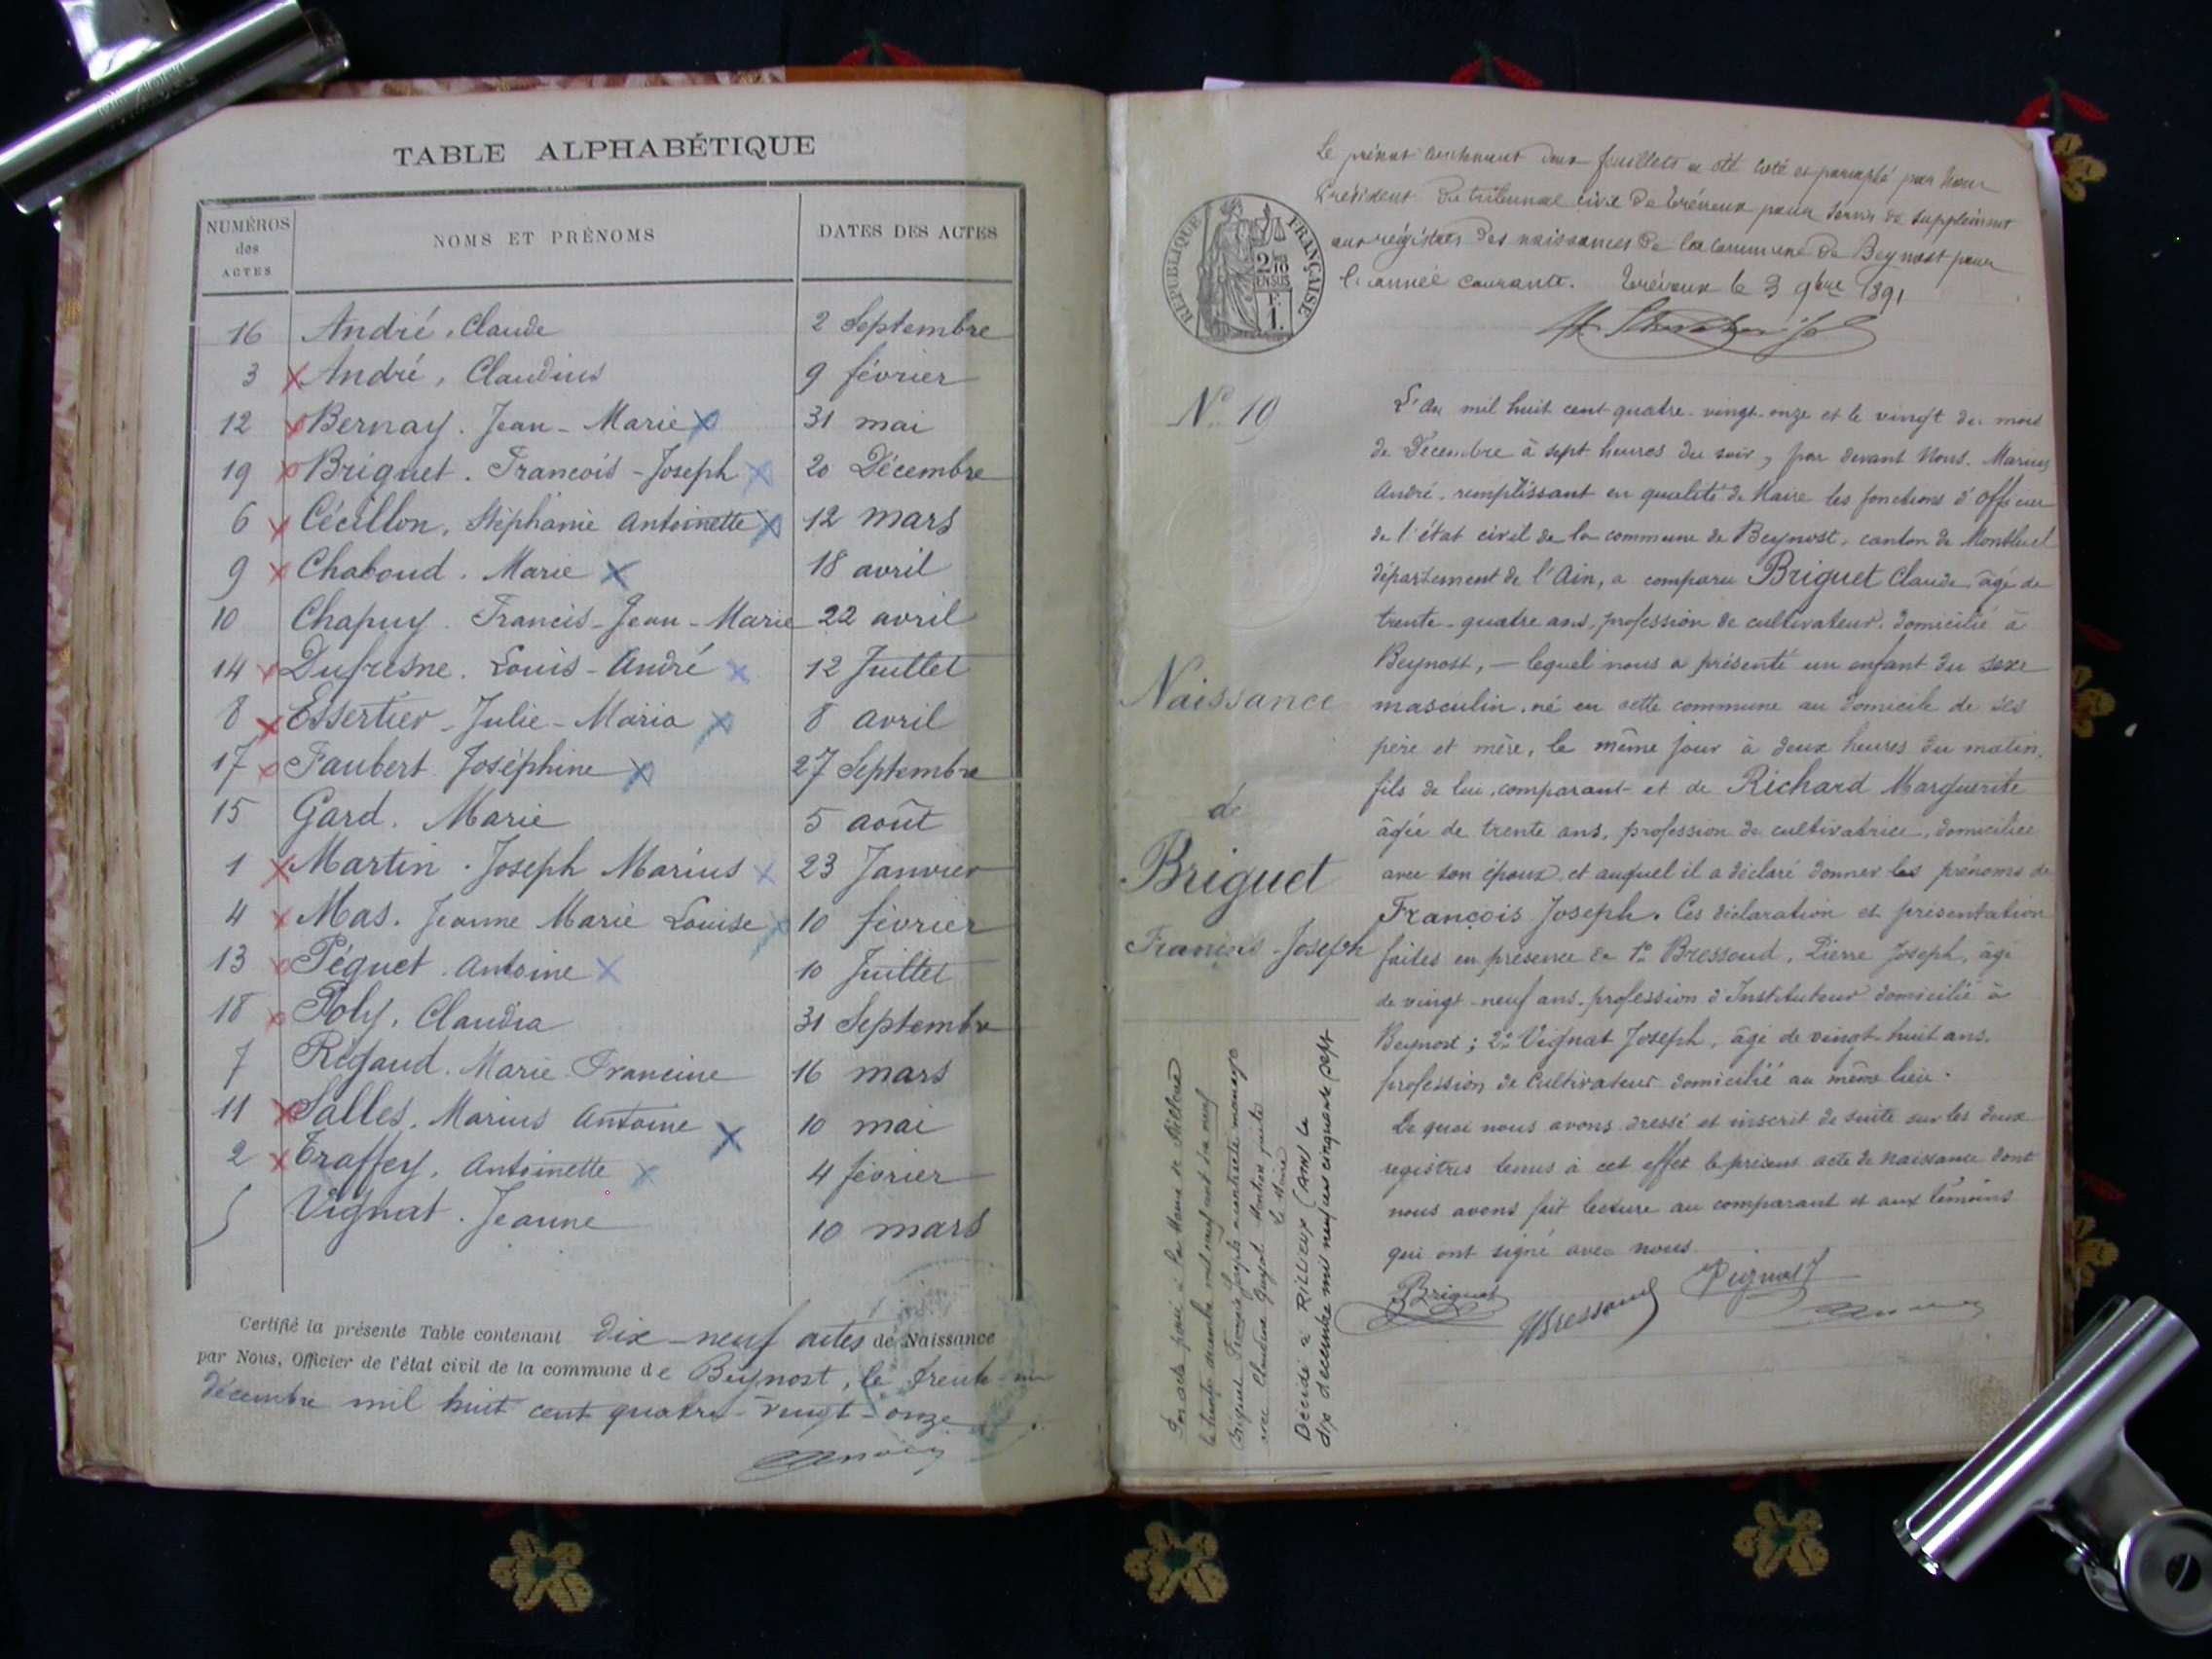 TABLE ALPHABÉTIQUE
NUMÉROS des ACTES
NOMS ET PRÉNOMS
DATES DES ACTES
16 André, Claude 2 Septembre
3 André, Claudius 9 février
12 Bernay. Jean-Marie 31 mai
19 Briguet. Francois-Joseph 20 Décembre
6 Cécillon, Stéphanie Antoinette 12 mars
9 Chaboud. Marie 18 avril
10 Chapuy. Francis-Jean-Marie 22 avril
14 Dufresne. Louis-André 12 Juillet
8 Essertier-Julie-Maria 8 avril
17 Faubert Joséphine 27 Septembre
15 Gard. Marie 5 août
1 Martin. Joseph Marius 23 Janvier
4 Mas. Jeanne Marie Louise 10 février
13 Péguet. Antoine 10 Juillet
18 Poly, Claudia 31 Septembre
7 Rigaud. Marie Francine 16 mars
11 Salles, Marius Antoine 10 mai
2 Traffey, Antoinette 4 février
5 Vignat. Jeanne 10 mars
Certifié la présente Table contenant dix-neuf actes de Naissance
par Nous, Officier de l'état civil de la commune de Beynost, le trente un
décembre mil huit cent quatre-vingt-onze
Le présent contenant deux feuillets a été coté et paraphé par Nous
Président du tribunal civil de Trévoux pour servir de supplément
aux registres des naissances de la commune de Beynost pour
l'année courante. Trévoux le 3 9bre 1891
RÉPUBLIQUE FRANÇAISE
2/10 EN SUS
F. 1.
N° 19
Naissance
de
Briguet
François-Joseph
L'an mil huit cent quatre-vingt-onze et le vingt du mois
de Décembre à sept heures du soir, par devant Nous. Marius
André, remplissant en qualité de Maire les fonctions d'officier
de l'état civil de la commune de Beynost, canton de Montluel
département de l'Ain, a comparu Briguet Claude, âgé de
trente-quatre ans, profession de cultivateur, domicilié à
Beynost, — lequel nous a présenté un enfant du sexe
masculin, né en cette commune au domicile de ses
père et mère, le même jour à deux heures du matin,
fils de lui, comparant et de Richard Marguerite
âgée de trente ans, profession de cultivatrice, domiciliée
avec son époux, et auquel il a déclaré donner les prénoms de
François Joseph. Ces déclaration et présentation
faites en présence de 1° Bressoud, Pierre Joseph, âgé
de vingt-neuf ans, profession d'Instituteur domicilié à
Beynost; 2° Vignat Joseph, âgé de vingt-huit ans,
profession de Cultivateur domicilié au même lieu.
De quoi nous avons dressé et inscrit de suite sur les deux
registres tenus à cet effet le présent acte de naissance dont
nous avons fait lecture au comparant et aux témoins
qui ont signé avec nous.
Briguet
Bressoud
Vignat J
Par acte passé à la Mairie de
Briguet François Joseph a contracté mariage
avec Claudine Guyot. Mention faite
Le Maire
Décédé à RILLIEUX (AIN) le
dix décembre mil neuf cent cinquante sept